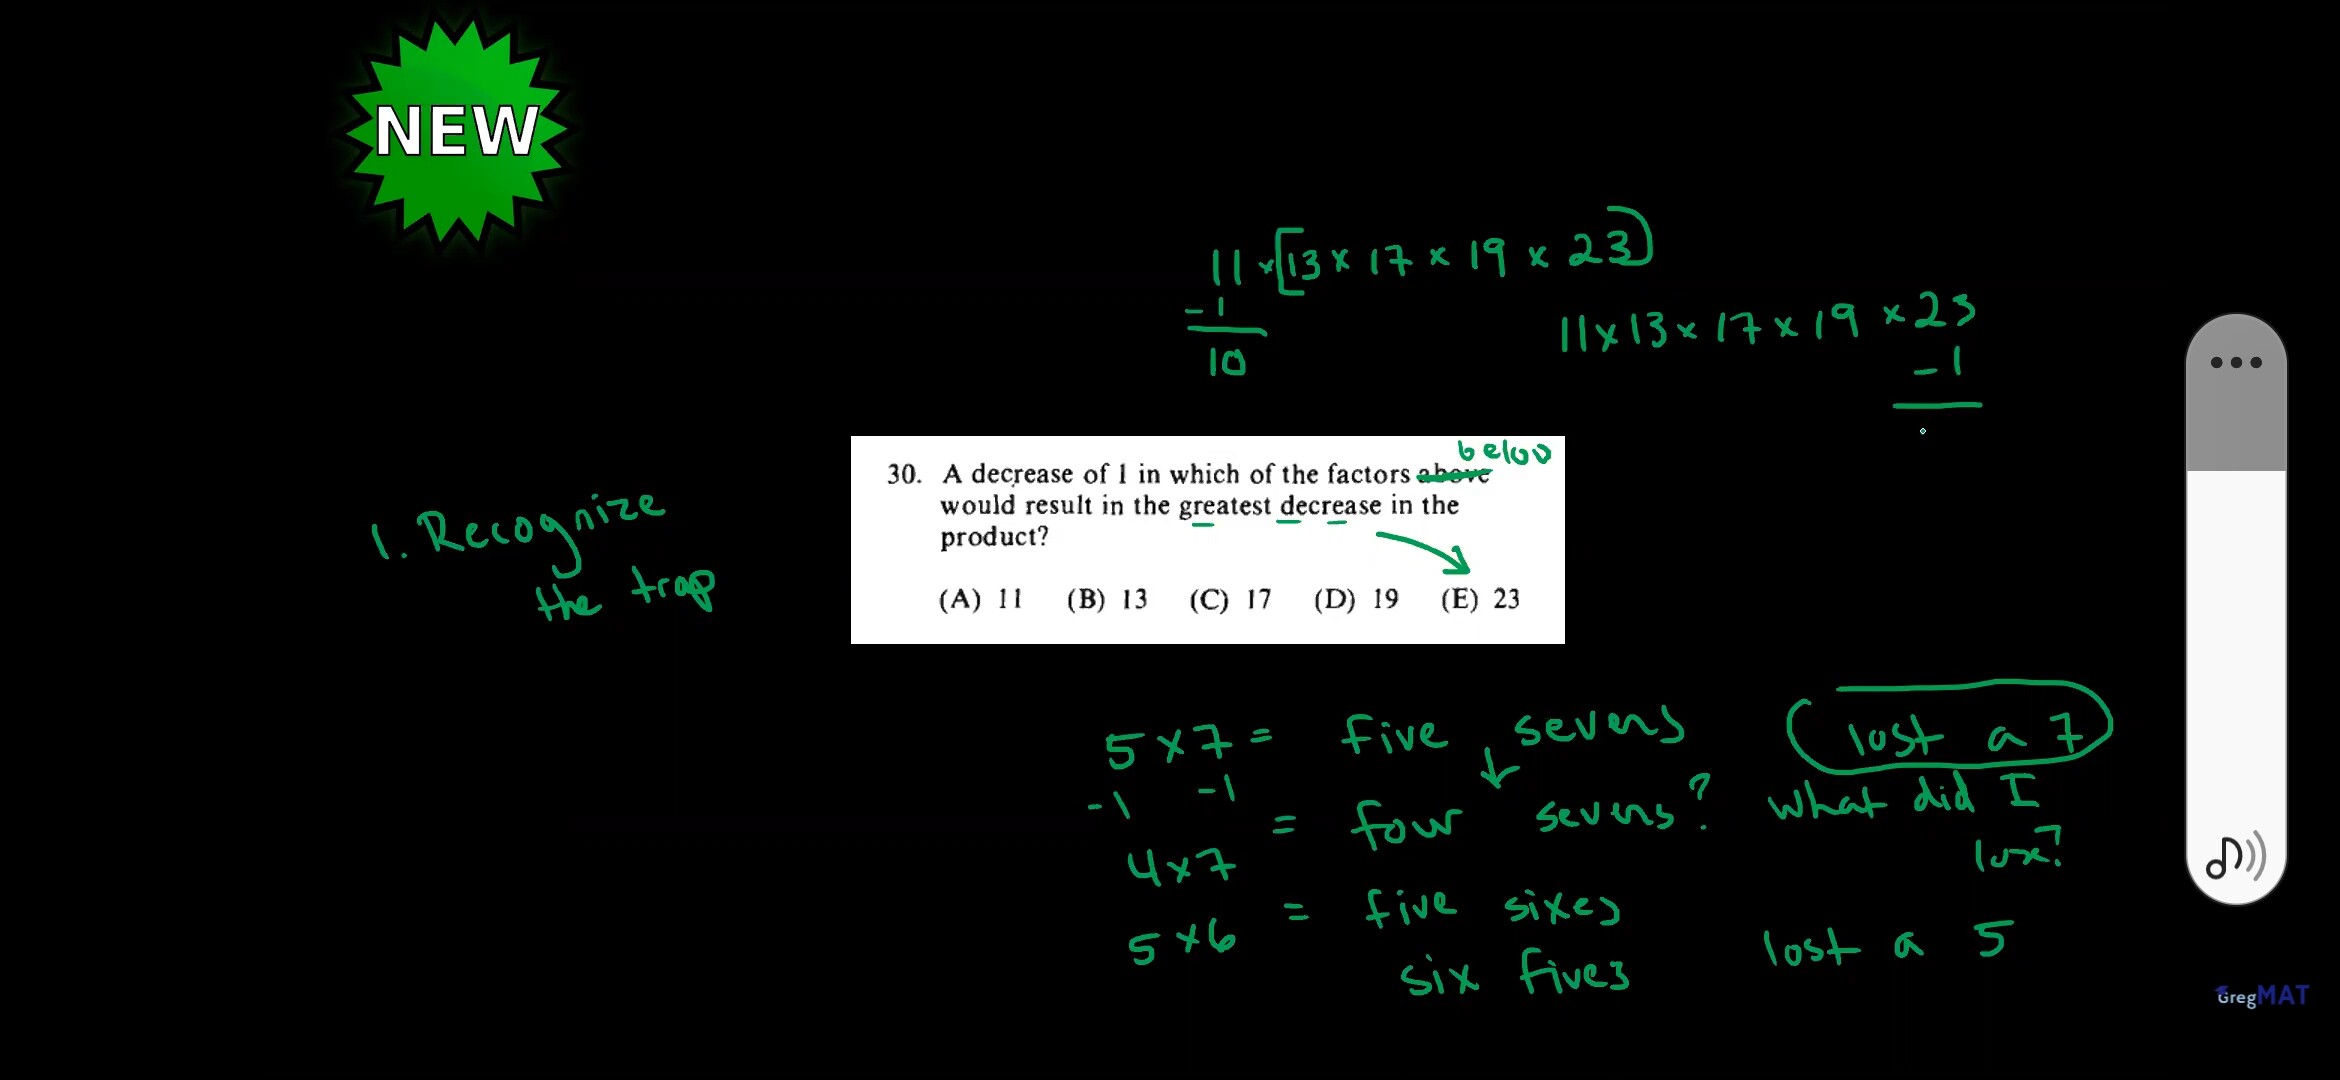 NEW
11 × [13 × 17 × 19 × 23)
-1
10
11 × 13 × 17 × 19 × 23
-1
below
30. A decrease of 1 in which of the factors above
would result in the greatest decrease in the
product?
(A) 11 (B) 13 (C) 17 (D) 19 (E) 23
1. Recognize
the trap
5 × 7 = five sevens lost a 7
-1 -1
= four sevens? what did I
4 × 7
5 × 6 = five sixes
six fives lost a 5
GregMAT